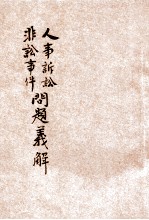 人事訴訟
非訟事件
問題義解